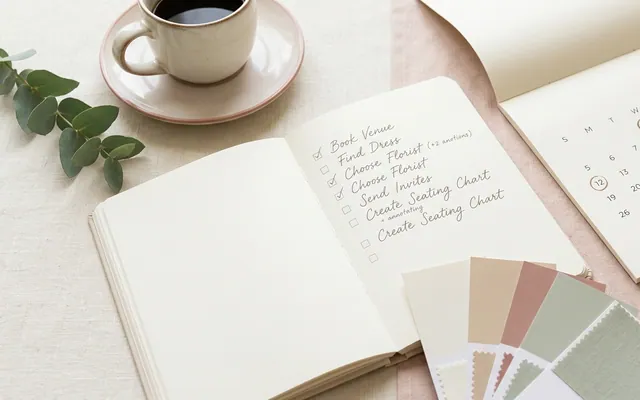 Book Venue
Find Dress
Choose Florist (+2
Choose Florist
Send Invites
Create Seating Chart
+ annotating
Create Seating Chart
S M T W
5 6 7
12 13
19 20
26